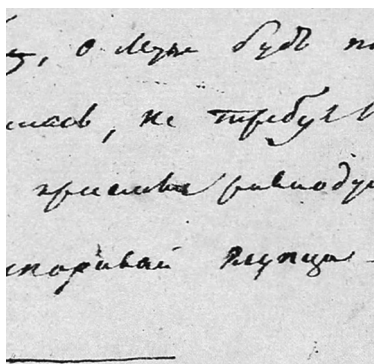 , о Муза будь по
шась, не требуя
приемли равноду
споривай глупца.